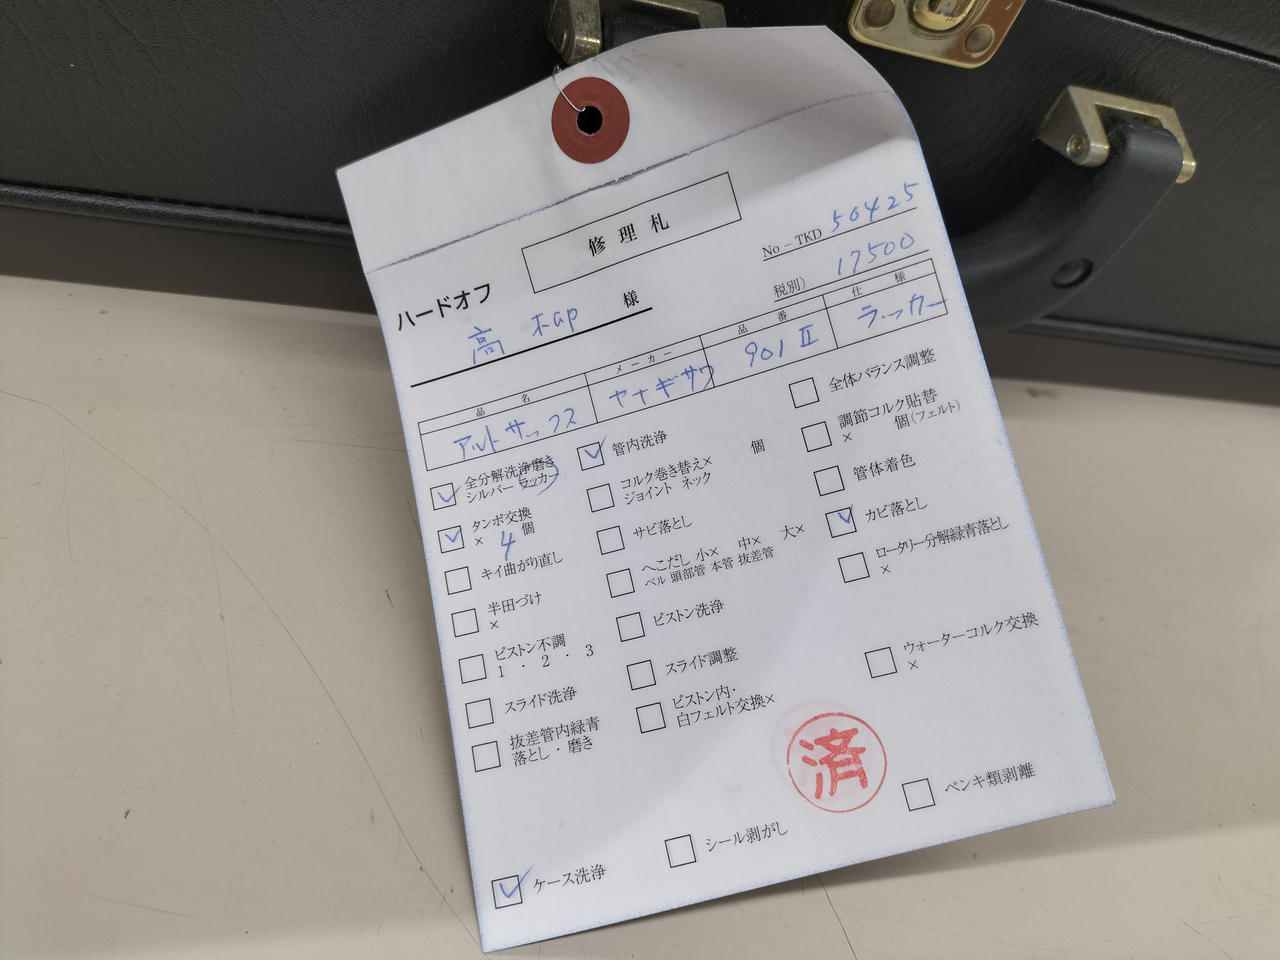 修理札
No－TKD 50425
税別） 17500
ハードオフ
高 様
品名 メーカー 品番 仕様
アルトサックス ヤナギサワ 901 II ラッカー
全分解洗浄磨き
シルバー ラッカー
タンポ交換
× 4 個
キイ曲がり直し
半田づけ
×
ピストン不調
1 ・ 2 ・ 3
スライド洗浄
抜差管内緑青
落とし・磨き
ケース洗浄
管内洗浄
コルク巻き替え× 個
ジョイント ネック
サビ落とし
へこだし 小× 中× 大×
ベル 頭部管 本管 抜差管
ピストン洗浄
スライド調整
ピストン内・
白フェルト交換×
シール剥がし
全体バランス調整
調節コルク貼替
× 個（フェルト）
管体着色
カビ落とし
ロータリー分解緑青落とし
×
ウォーターコルク交換
×
済
ペンキ類剥離